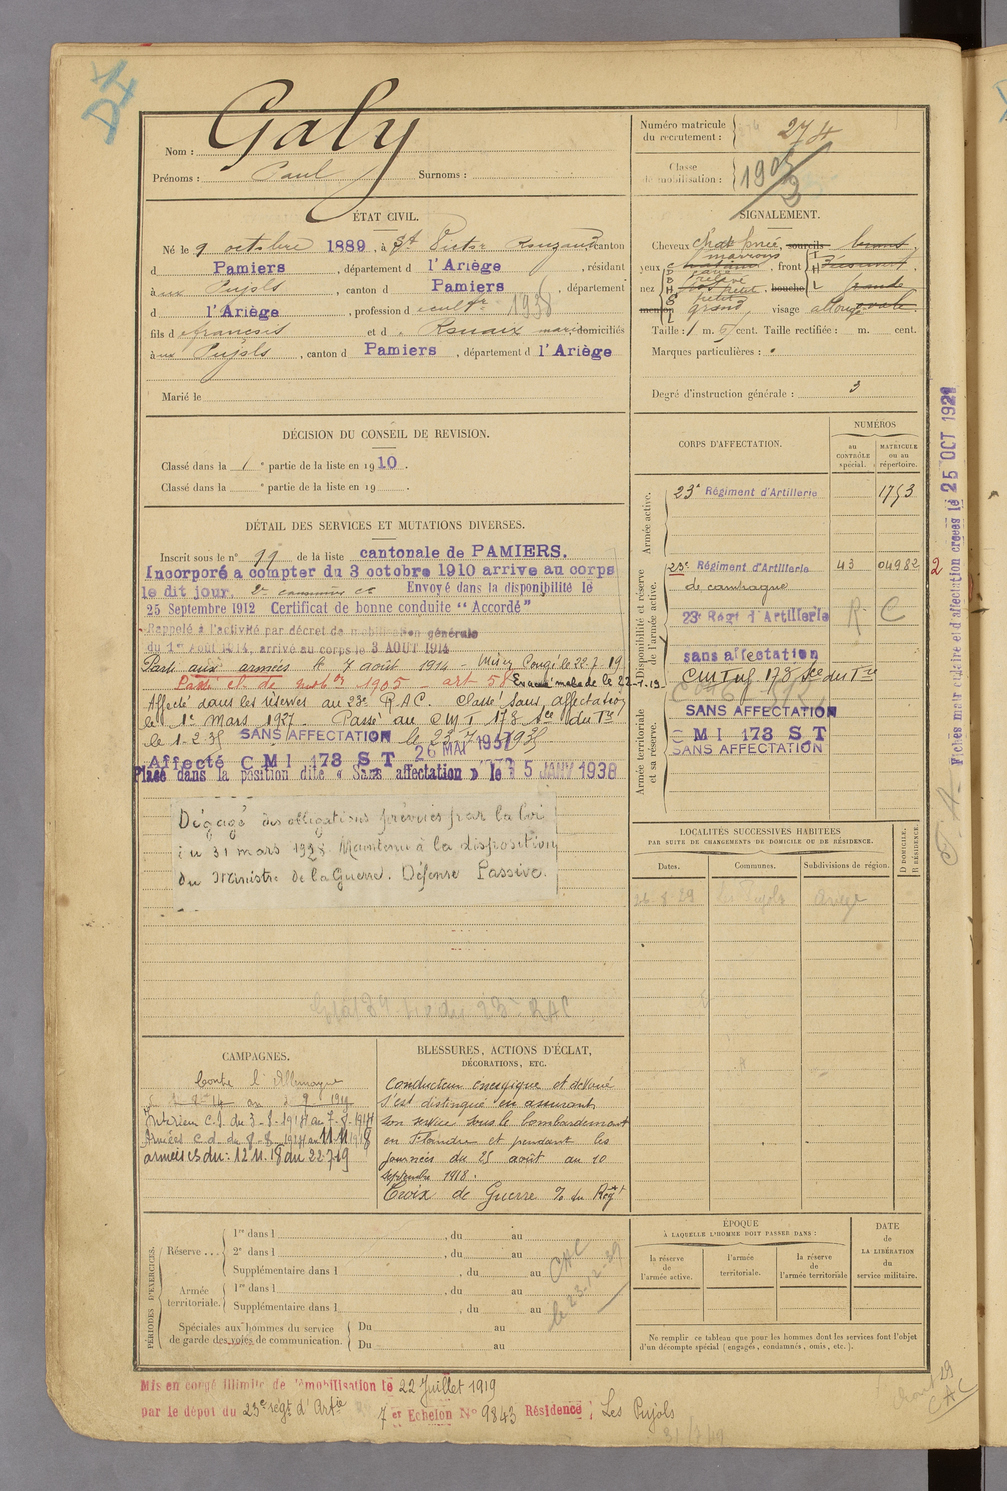 Nom : Galy
Prénoms : Paul Surnoms :
ÉTAT CIVIL.
Né le 9 octobre 1889, à St Victor Rouzaud, canton
d Pamiers, département d l'Ariège, résidant
à aux Pujols, canton d Pamiers, département
d l'Ariège, profession d cultr 1938
fils d François et d Rouaix domiciliés
à aux Pujols, canton d Pamiers, département d l'Ariège
Marié le
DÉCISION DU CONSEIL DE REVISION.
Classé dans la 1 e partie de la liste en 1910.
Classé dans la e partie de la liste en 19 .
DÉTAIL DES SERVICES ET MUTATIONS DIVERSES.
Inscrit sous le n° 99 de la liste cantonale de PAMIERS.
Incorporé a compter du 3 octobre 1910 arrive au corps
le dit jour. 2e Envoyé dans la disponibilité le
25 Septembre 1912 Certificat de bonne conduite "Accordé"
Rappelé à l'activité par décret de mobilisation générale
du 1er Août 1914, arrivé au corps le 3 AOUT 1914
Parti aux armées le 7 août 1914 - Mis en Congé le 22.7.19
Passé cl. de mobon 1905 - art 58 Evacué malade le 22-1-19-
Affecté dans les réserves au 23e R.A.C. Classé sans affectation
le 1er Mars 1927. Passé au C M I 178 Son du Tre
le 1-2-35 SANS AFFECTATION le 23-7-1935
Affecté C M I 173 S T 26 MAI 1937
Placé dans la position dite « Sans affectation » le 15 JANV 1938
Dégagé des obligations prévues par la loi
du 31 mars 1928. Maintenu à la disposition
du Ministre de la Guerre. Défense Passive.
23e RAC
CAMPAGNES.
Contre l'Allemagne
Intérieur C.S. du 3-8-1914 au 7-8-1914
Armées C.d. du 8-8-1914 au 11.11.1918
armées CS du: 12.11.18 au 22.7.19
BLESSURES, ACTIONS D'ÉCLAT,
DÉCORATIONS, ETC.
Conducteur énergique et dévoué
s'est distingué en assurant
son service sous le bombardement
en Flandre et pendant les
journées du 25 août au 10
septembre 1918.
Croix de Guerre % du Régt
PÉRIODES D'EXERCICES.
Réserve ...
1re dans l , du au
2e dans l , du au
Supplémentaire dans l , du au
Armée territoriale.
1re dans l , du au
Supplémentaire dans l , du au
Spéciales aux hommes du service de garde des voies de communication.
Du au
Du au
CAC
le 23-12-29
Mis en congé illimité de démobilisation le 22 Juillet 1919
par le dépôt du 23e régt d'Artie
7er Echelon N° 9843 Résidence; Les Pujols
Numéro matricule du recrutement : 274
Classe de mobilisation : 1903
SIGNALEMENT.
Cheveux chat foncé, sourcils bruns,
yeux marrons, front
nez petit, bouche grande
menton grand, visage allongé ovale.
Taille : 1 m. cent. Taille rectifiée : m. cent.
Marques particulières :
Degré d'instruction générale : 3
CORPS D'AFFECTATION.
NUMÉROS
au CONTRÔLE spécial.
MATRICULE ou au répertoire.
Armée active.
23e Régiment d'Artillerie 1753
Disponibilité et réserve de l'armée active.
23e Régiment d'Artillerie 43 04982 2
de campagne
23e Régt d'Artillerie R C
sans affectation
CM Inf. 178 Son du Tre
Armée territoriale et sa réserve.
SANS AFFECTATION
C M I 173 S T
SANS AFFECTATION
LOCALITÉS SUCCESSIVES HABITÉES
PAR SUITE DE CHANGEMENTS DE DOMICILE OU DE RÉSIDENCE.
Dates. Communes. Subdivisions de région. D DOMICILE. R RÉSIDENCE.
26-8-29 Les Pujols Ariège
ÉPOQUE
À LAQUELLE L'HOMME DOIT PASSER DANS :
la réserve de l'armée active.
l'armée territoriale.
la réserve de l'armée territoriale
DATE DE LA LIBÉRATION du service militaire.
Ne remplir ce tableau que pour les hommes dont les services font l'objet
d'un décompte spécial (engagés, condamnés, omis, etc.).
Fiches matriculaire et d'affectation créées le 25 OCT 1921
CAC